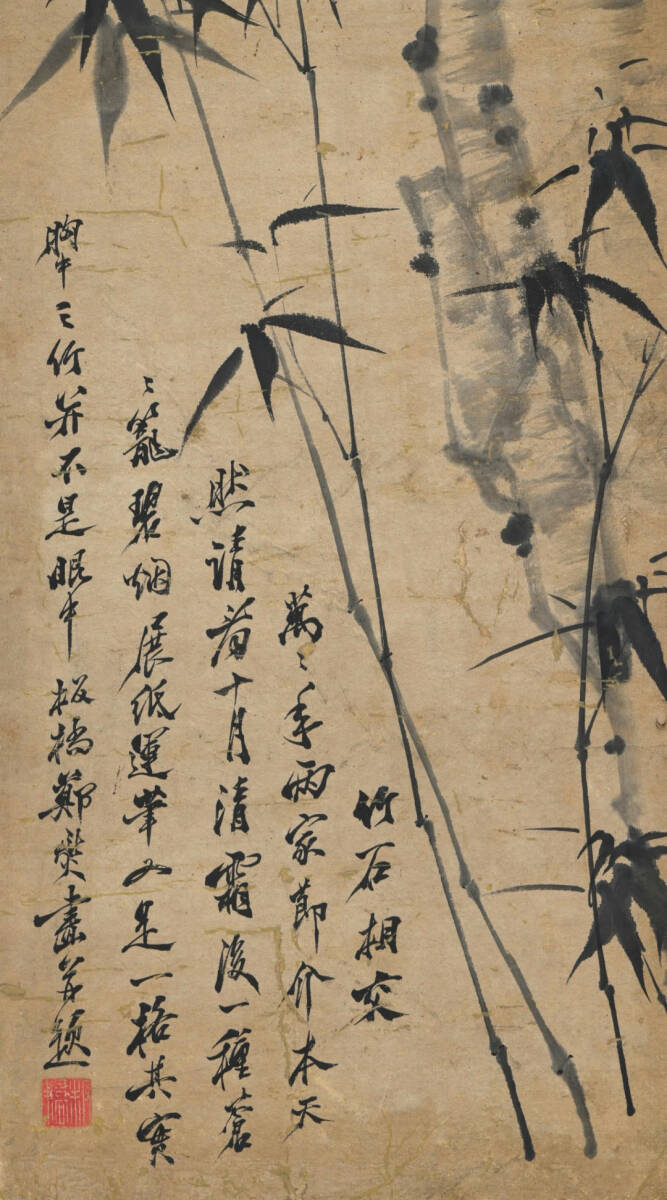 竹石相交
萬〻年兩家節介本天
然請看十月清霜後一種蒼
〻籠碧烟展紙運筆又是一格其實
胸中之竹並不是眼中板橋鄭燮畫并題